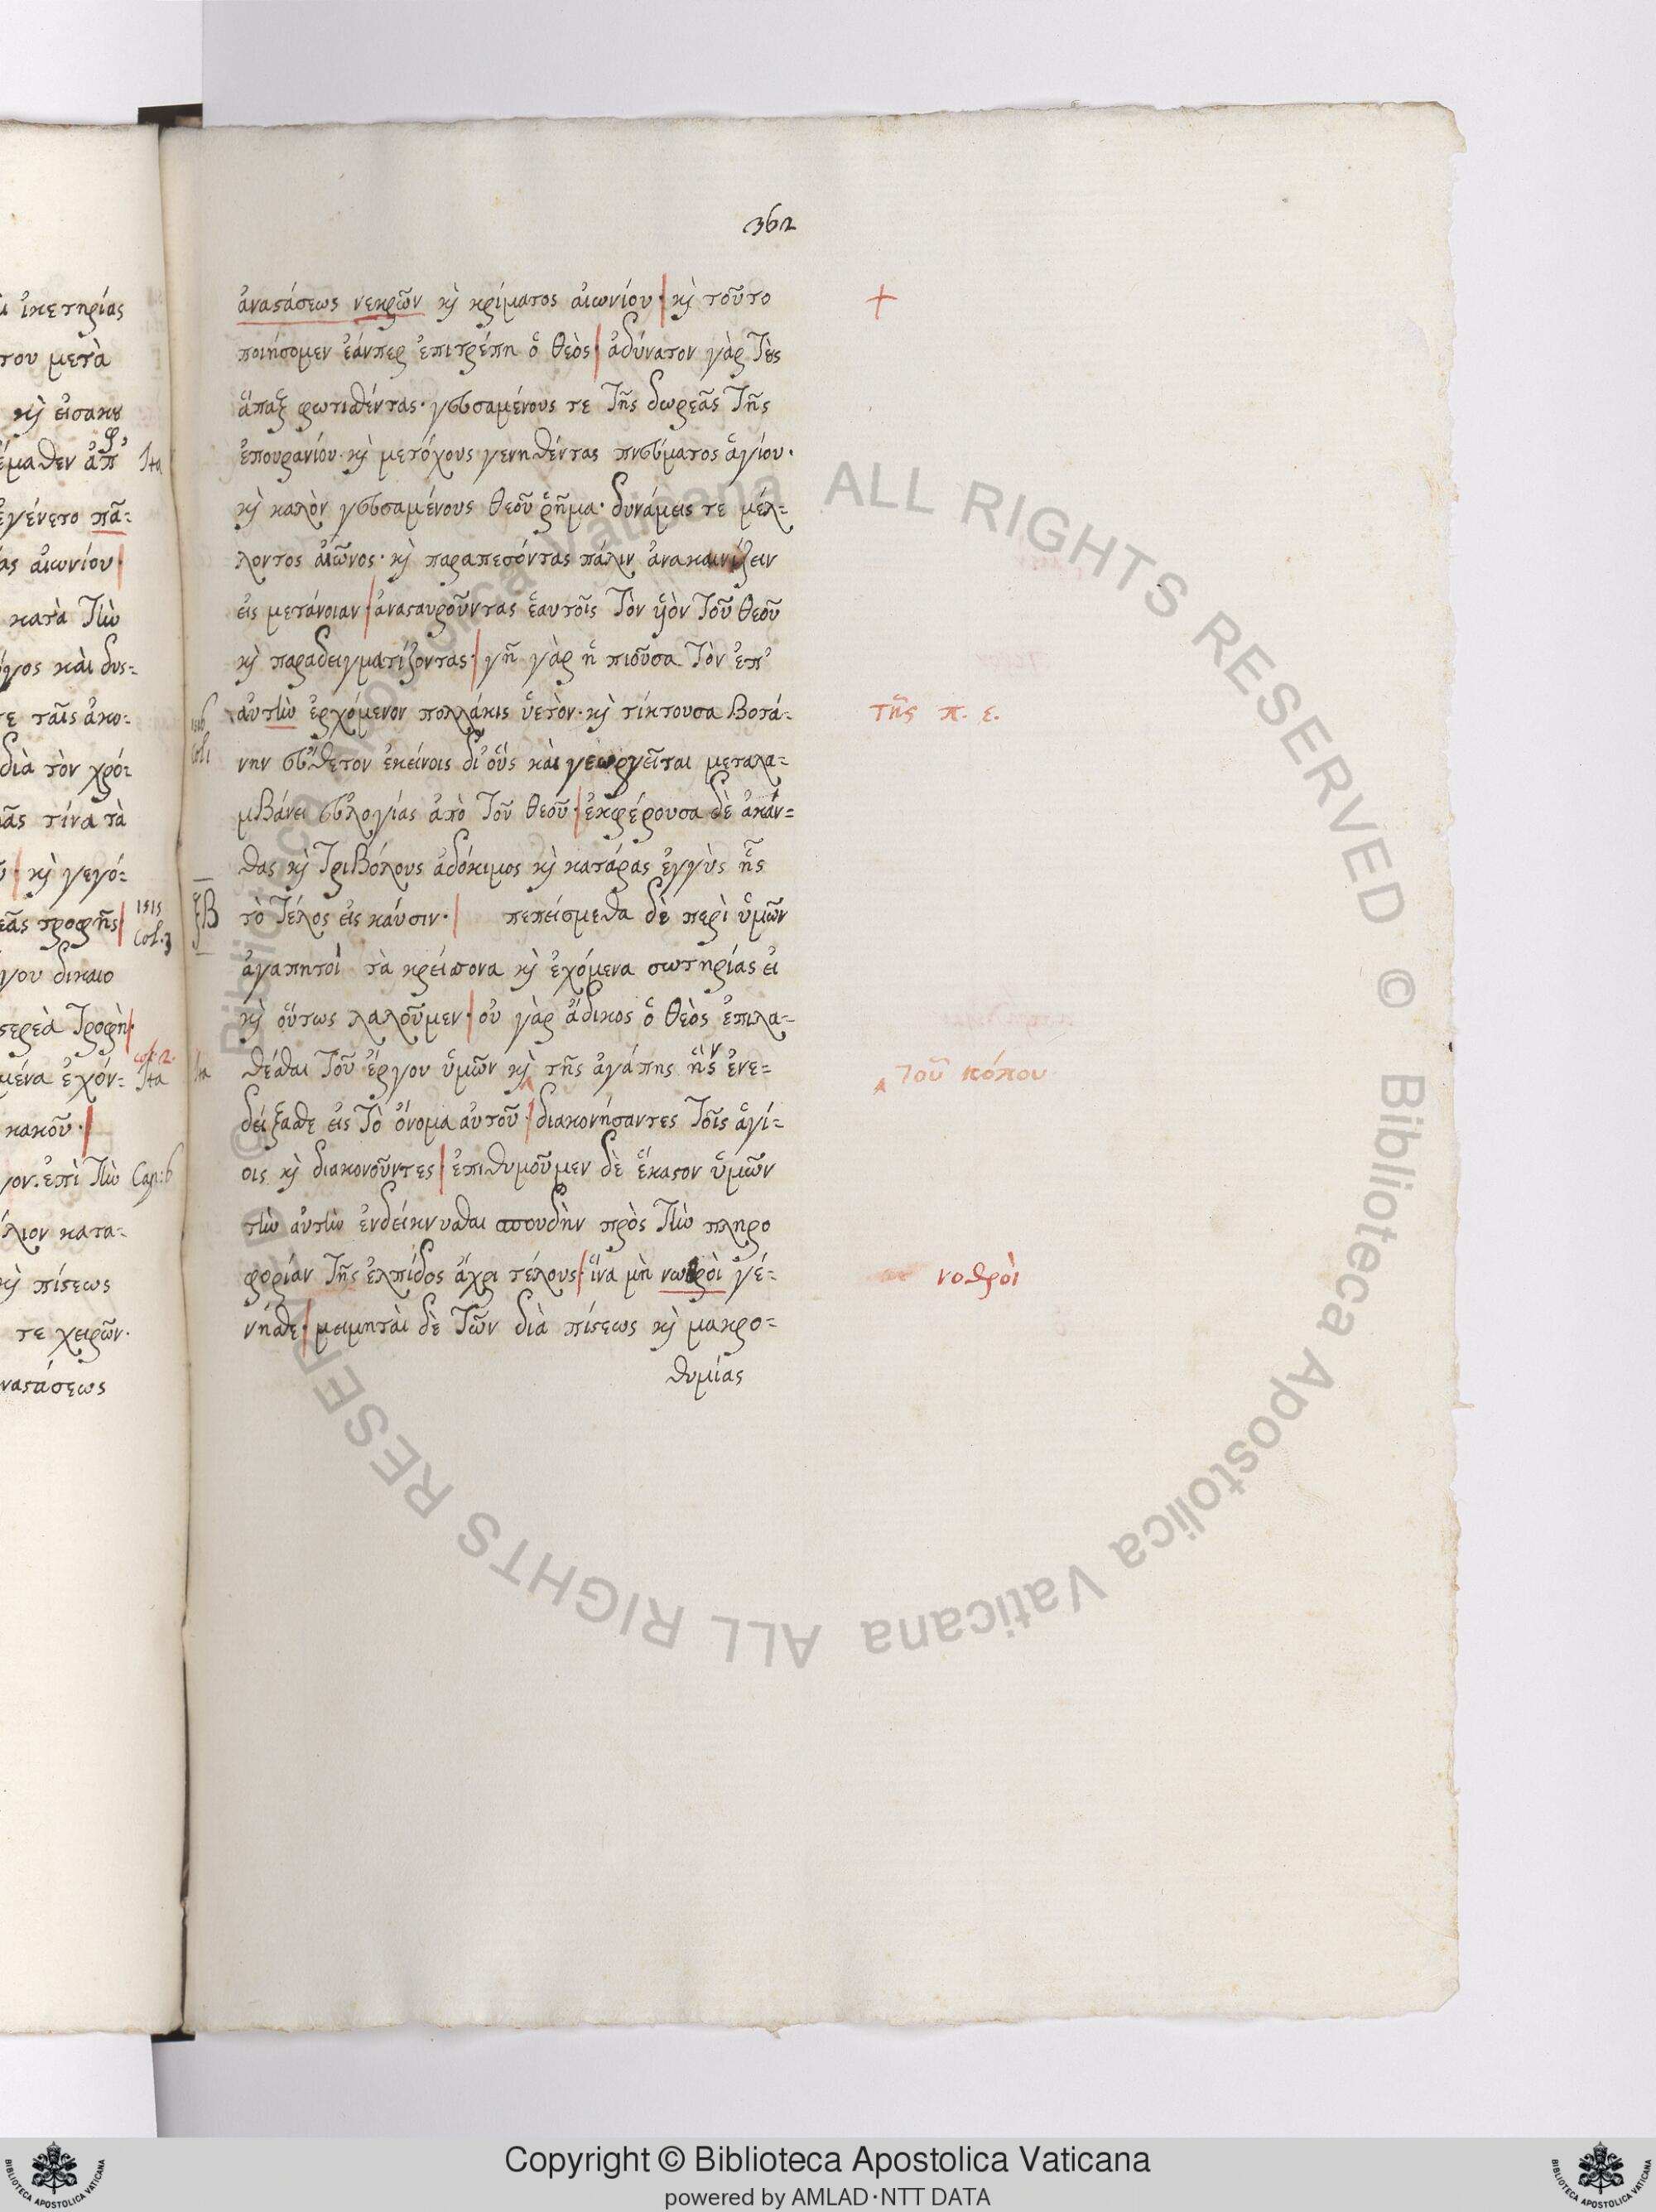 362
ἀναστάσεως νεκρῶν κὶ κρίματος αἰωνίου· κὶ τοῦτο
+
ποιήσομεν ἐάνπερ ἐπιτρέπη ὁ θεὸς· ἀδύνατον γὰρ τοὺς
ἅπαξ φωτισθέντας· γευσαμένους τε τῆς δωρεᾶς τῆς
ἐπουρανίου· κὶ μετόχους γενηθέντας πνεύματος ἁγίου·
κὶ καλὸν γευσαμένους θεοῦ ῥῆμα· δυνάμεις τε μέλ=
λοντος αἰῶνος· κὶ παραπεσόντας πάλιν ἀνακαινίζειν
εἰς μετάνοιαν· ἀνασταυροῦντας ἑαυτοῖς τὸν υἱὸν τοῦ θεοῦ
κὶ παραδειγματίζοντας· γῆ γὰρ ἡ πιοῦσα τὸν ἐπ'
αὐτὴν ἐρχόμενον πολλάκις ὑετὸν· κὶ τίκτουσα βοτά=
τῆς π. ε.
νην εὔθετον ἐκείνοις δι' οὓς καὶ γεωργεῖται μεταλα=
μβάνει εὐλογίας ἀπὸ τοῦ θεοῦ· ἐκφέρουσα δὲ ἀκάν=
θας κὶ τριβόλους ἀδόκιμος κὶ κατάρας ἐγγὺς ἧς
τὸ τέλος εἰς καύσιν· πεπείσμεθα δὲ περὶ ὑμῶν
ἀγαπητοὶ τὰ κρείσσονα κὶ ἐχόμενα σωτηρίας εἰ
κὶ οὕτως λαλοῦμεν· οὐ γὰρ ἄδικος ὁ θεὸς ἐπιλα=
θέσθαι τοῦ ἔργου ὑμῶν κὶ τῆς ἀγάπης ἧς ἐνε=
τοῦ κόπου
δείξασθε εἰς τὸ ὄνομα αὐτοῦ· διακονήσαντες τοῖς ἁγί=
οις κὶ διακονοῦντες· ἐπιθυμοῦμεν δὲ ἕκαστον ὑμῶν
τὴν αὐτὴν ἐνδείκνυσθαι σπουδὴν πρὸς τὴν πληρο
φορίαν τῆς ἐλπίδος ἄχρι τέλους· ἵνα μὴ νωθροὶ γέ=
νοθροὶ
νήσθε· μειμηταὶ δὲ τῶν διὰ πίστεως κὶ μακρο=
θυμίας
Copyright © Biblioteca Apostolica Vaticana
powered by AMLAD·NTT DATA